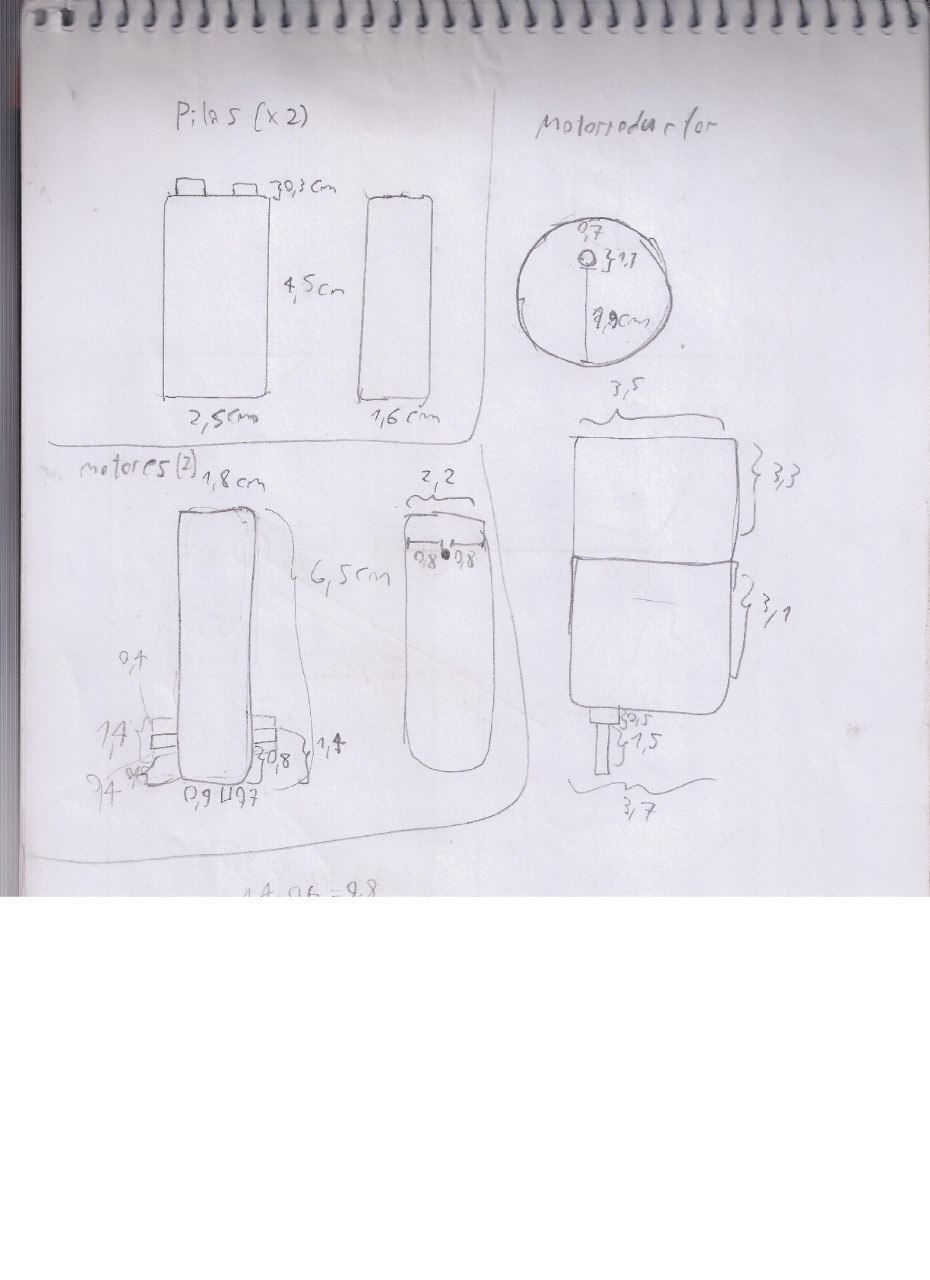 Pilas (x2)
0,3 cm
4,5 cm
2,5 cm
1,6 cm
Motorreductor
0,7
1,1
3,5
3,3
3,1
1,5
3,7
motores (2)
1,8 cm
6,5 cm
2,2
0,8
0,8
0,4
1,4
0,8
1,4
0,9